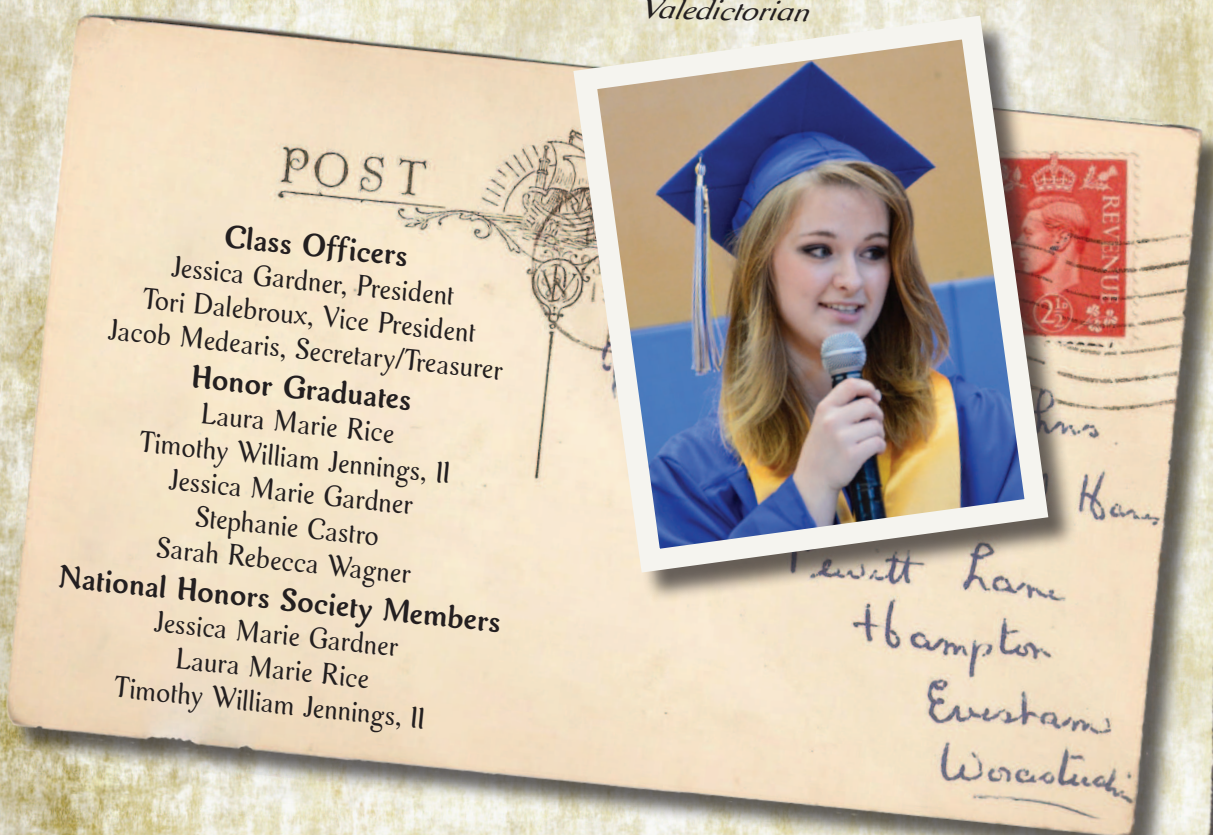 Valedictorian
POST
Class Officers
Jessica Gardner, President
Tori Dalebroux, Vice President
Jacob Medearis, Secretary/Treasurer
Honor Graduates
Laura Marie Rice
Timothy William Jennings, II
Jessica Marie Gardner
Stephanie Castro
Sarah Rebecca Wagner
National Honors Society Members
Jessica Marie Gardner
Laura Marie Rice
Timothy William Jennings, II
REVENUE
2½
Lane
Hampton